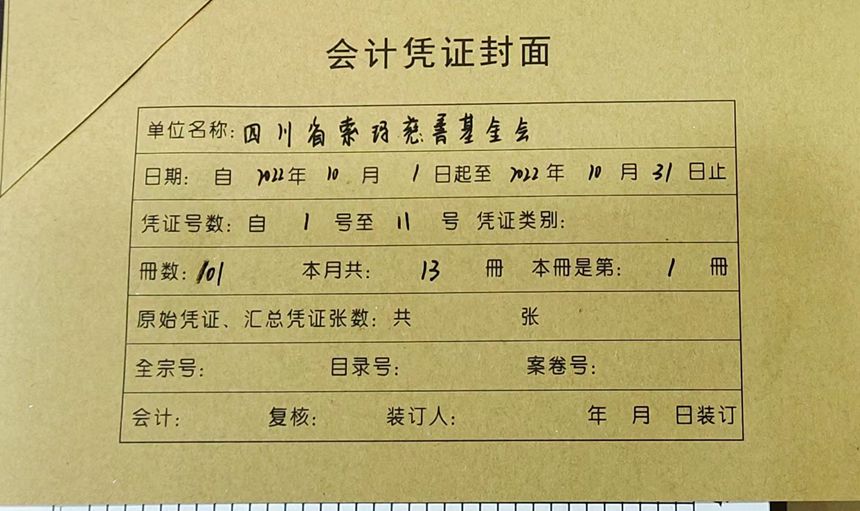 会计凭证封面
单位名称:四川省索玛慈善基金会
日期: 自 2022年 10 月 1 日起至 2022年 10 月 31 日止
凭证号数: 自 1 号至 11 号 凭证类别:
冊数: 101 本月共: 13 冊 本冊是第: 1 冊
原始凭证、汇总凭证张数: 共 张
全宗号: 目录号: 案卷号:
会计: 复核: 装订人: 年 月 日装订